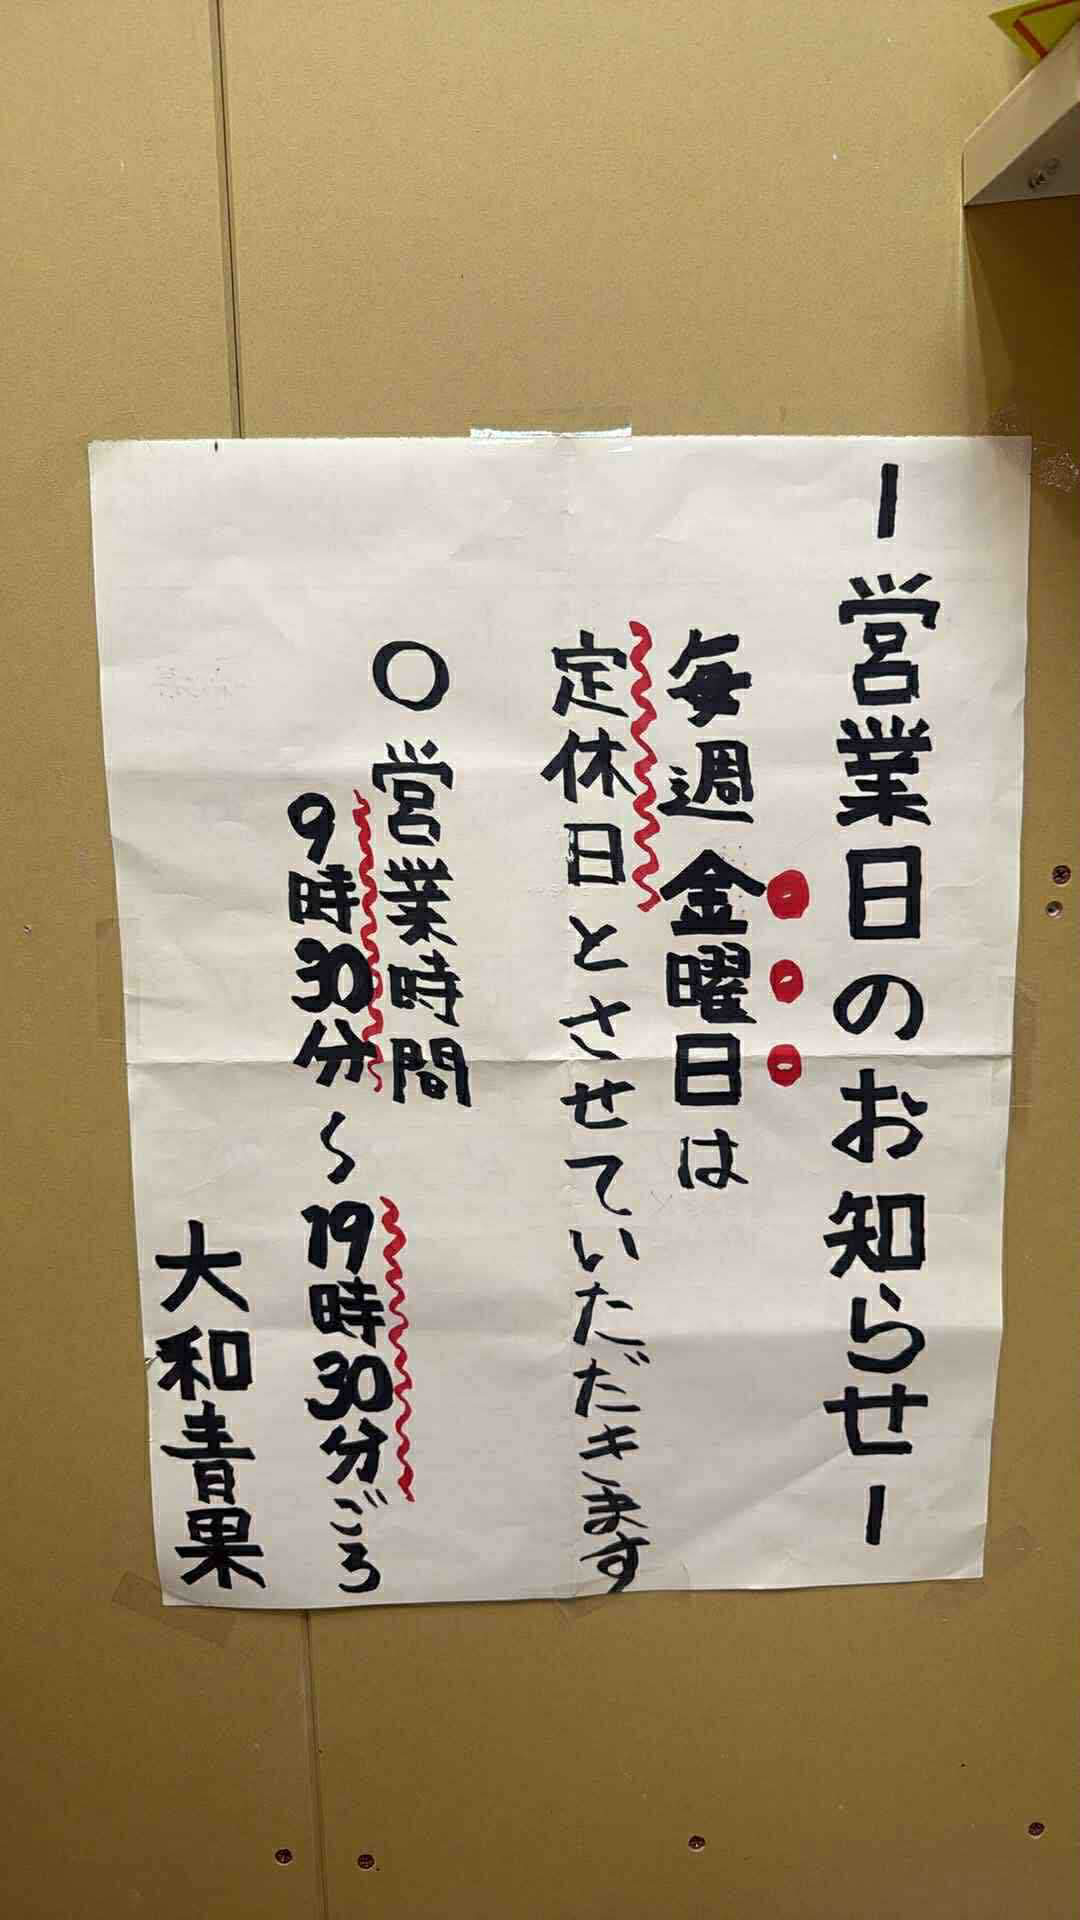 ー営業日のお知らせー
毎週金曜日は
定休日とさせていただきます
○営業時間
9時30分～19時30分ごろ
大和青果